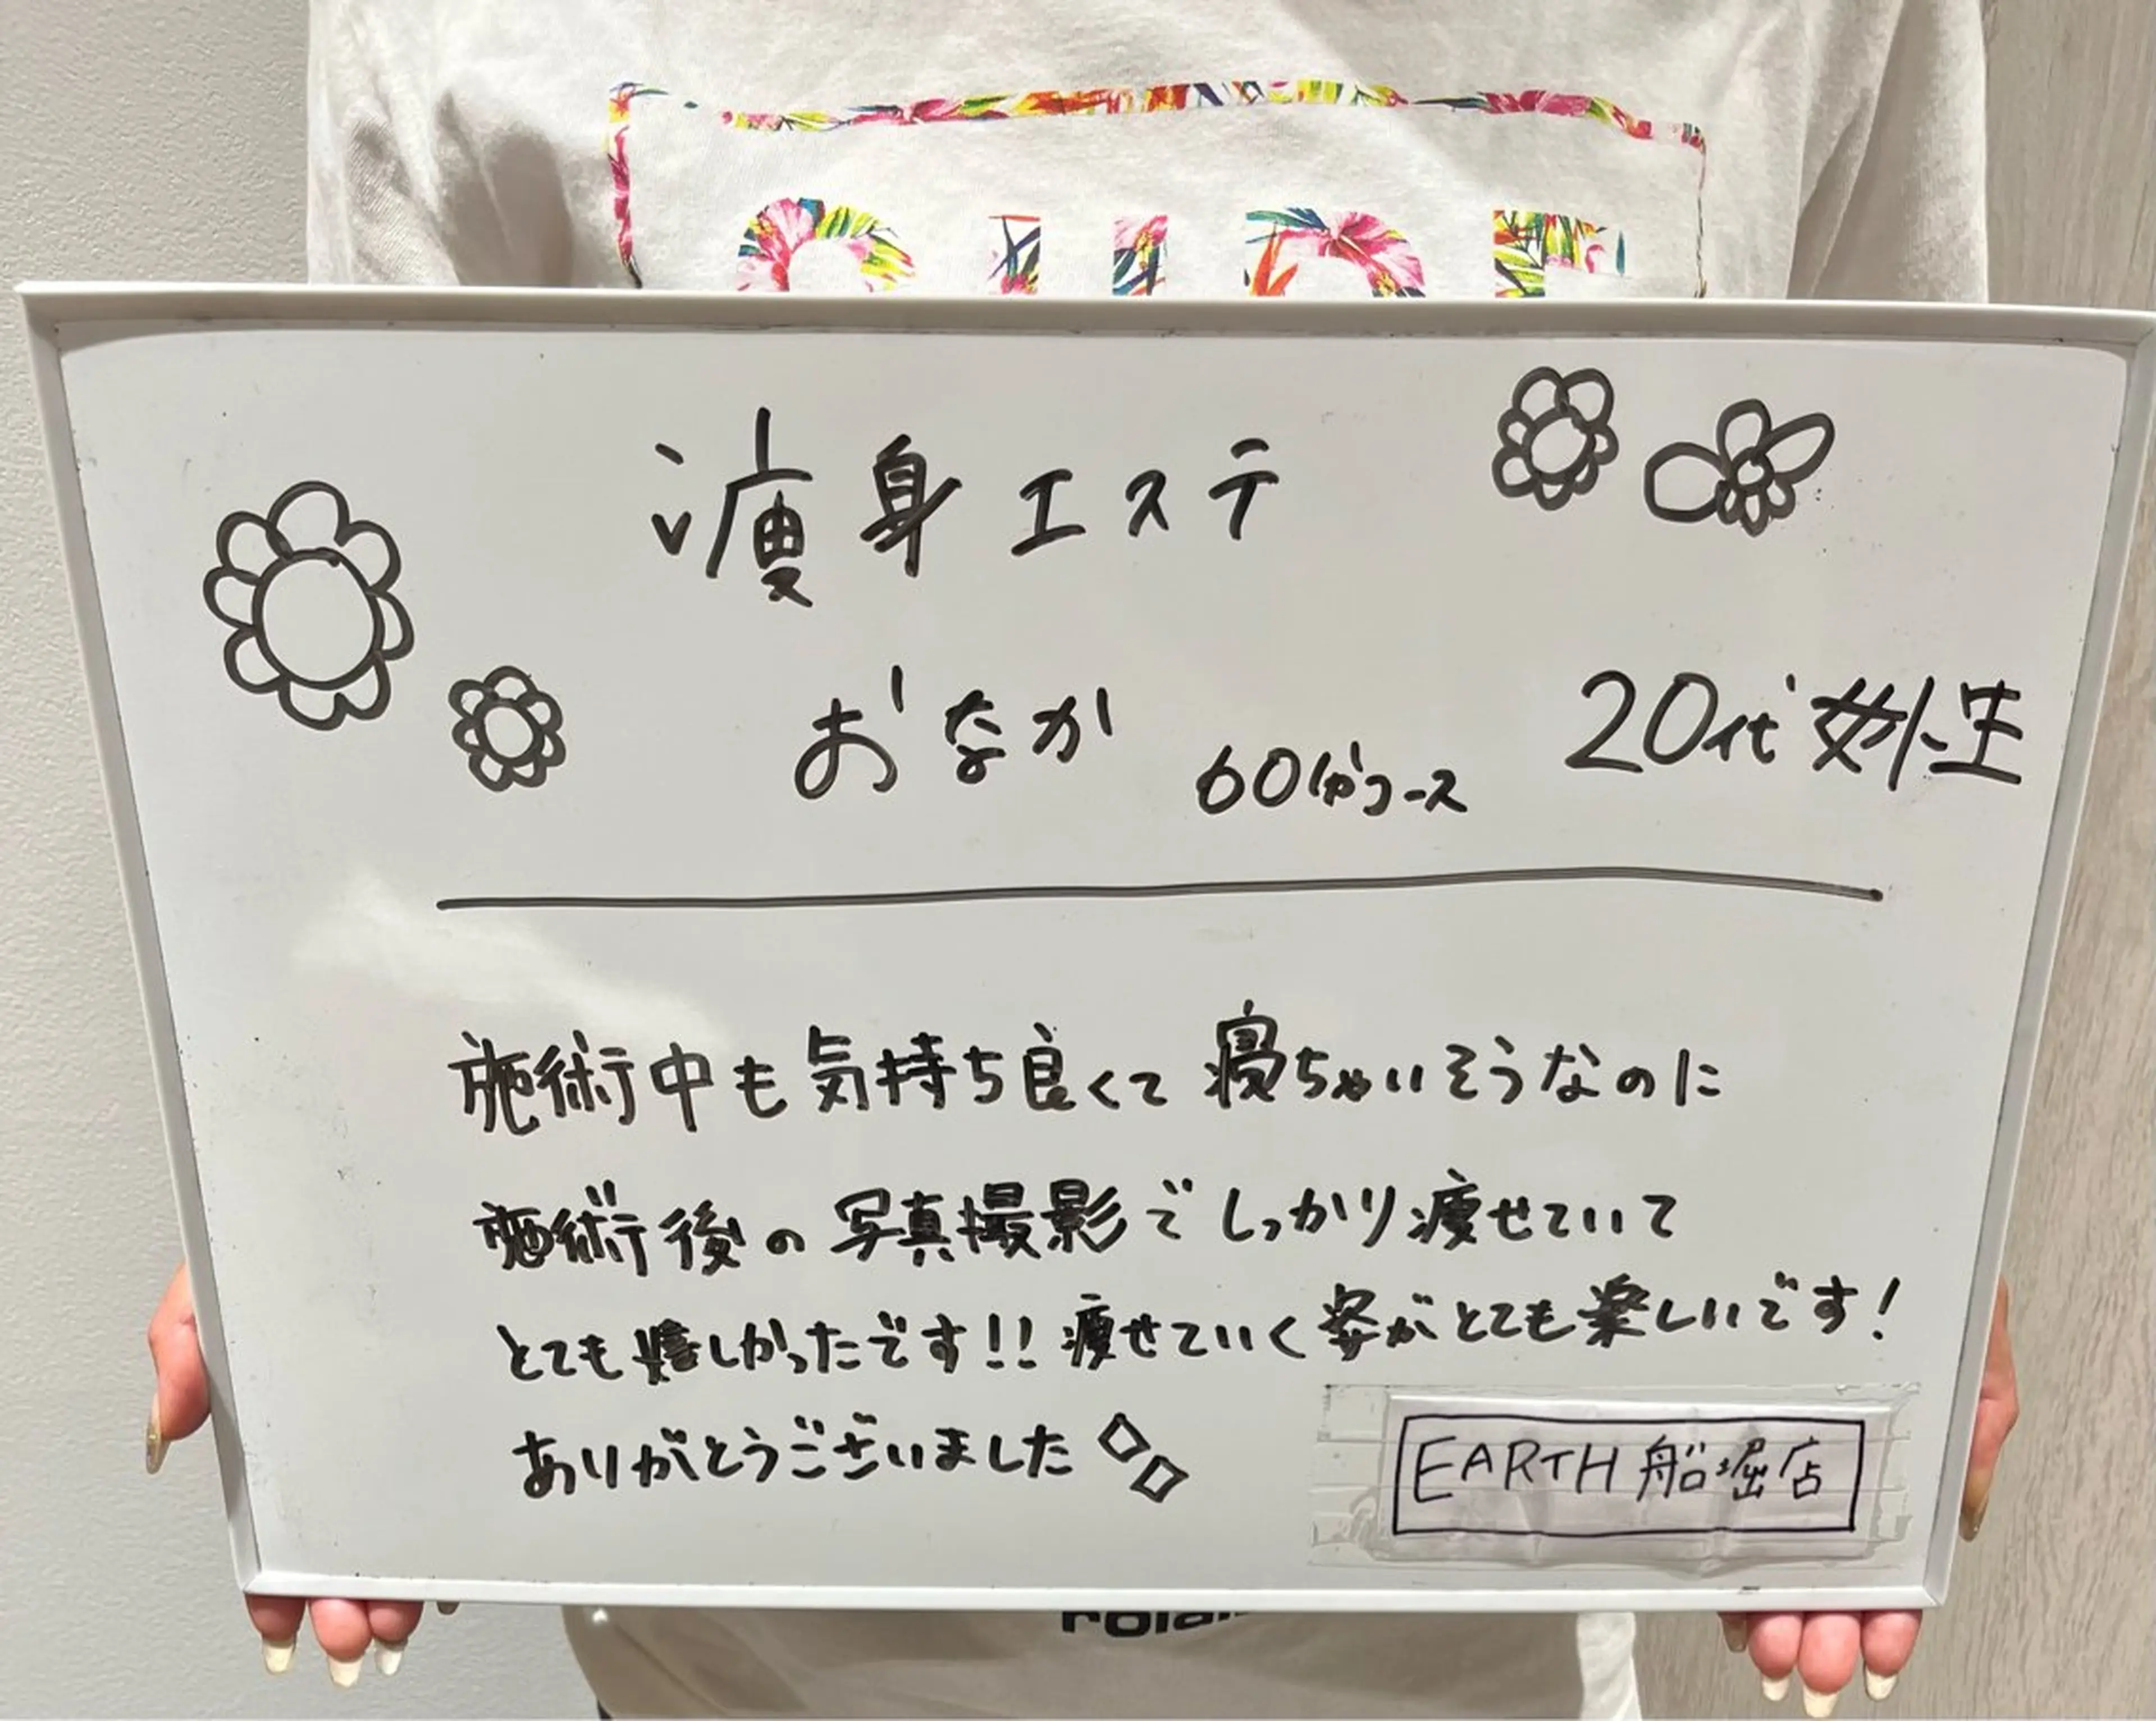 痩身エステ
おなか 60分コース 20代女性
施術中も気持ち良くて寝ちゃいそうなのに
施術後の写真撮影でしっかり痩せていて
とても嬉しかったです!! 痩せていく姿がとても楽しいです!
ありがとうございました
EARTH 船堀店